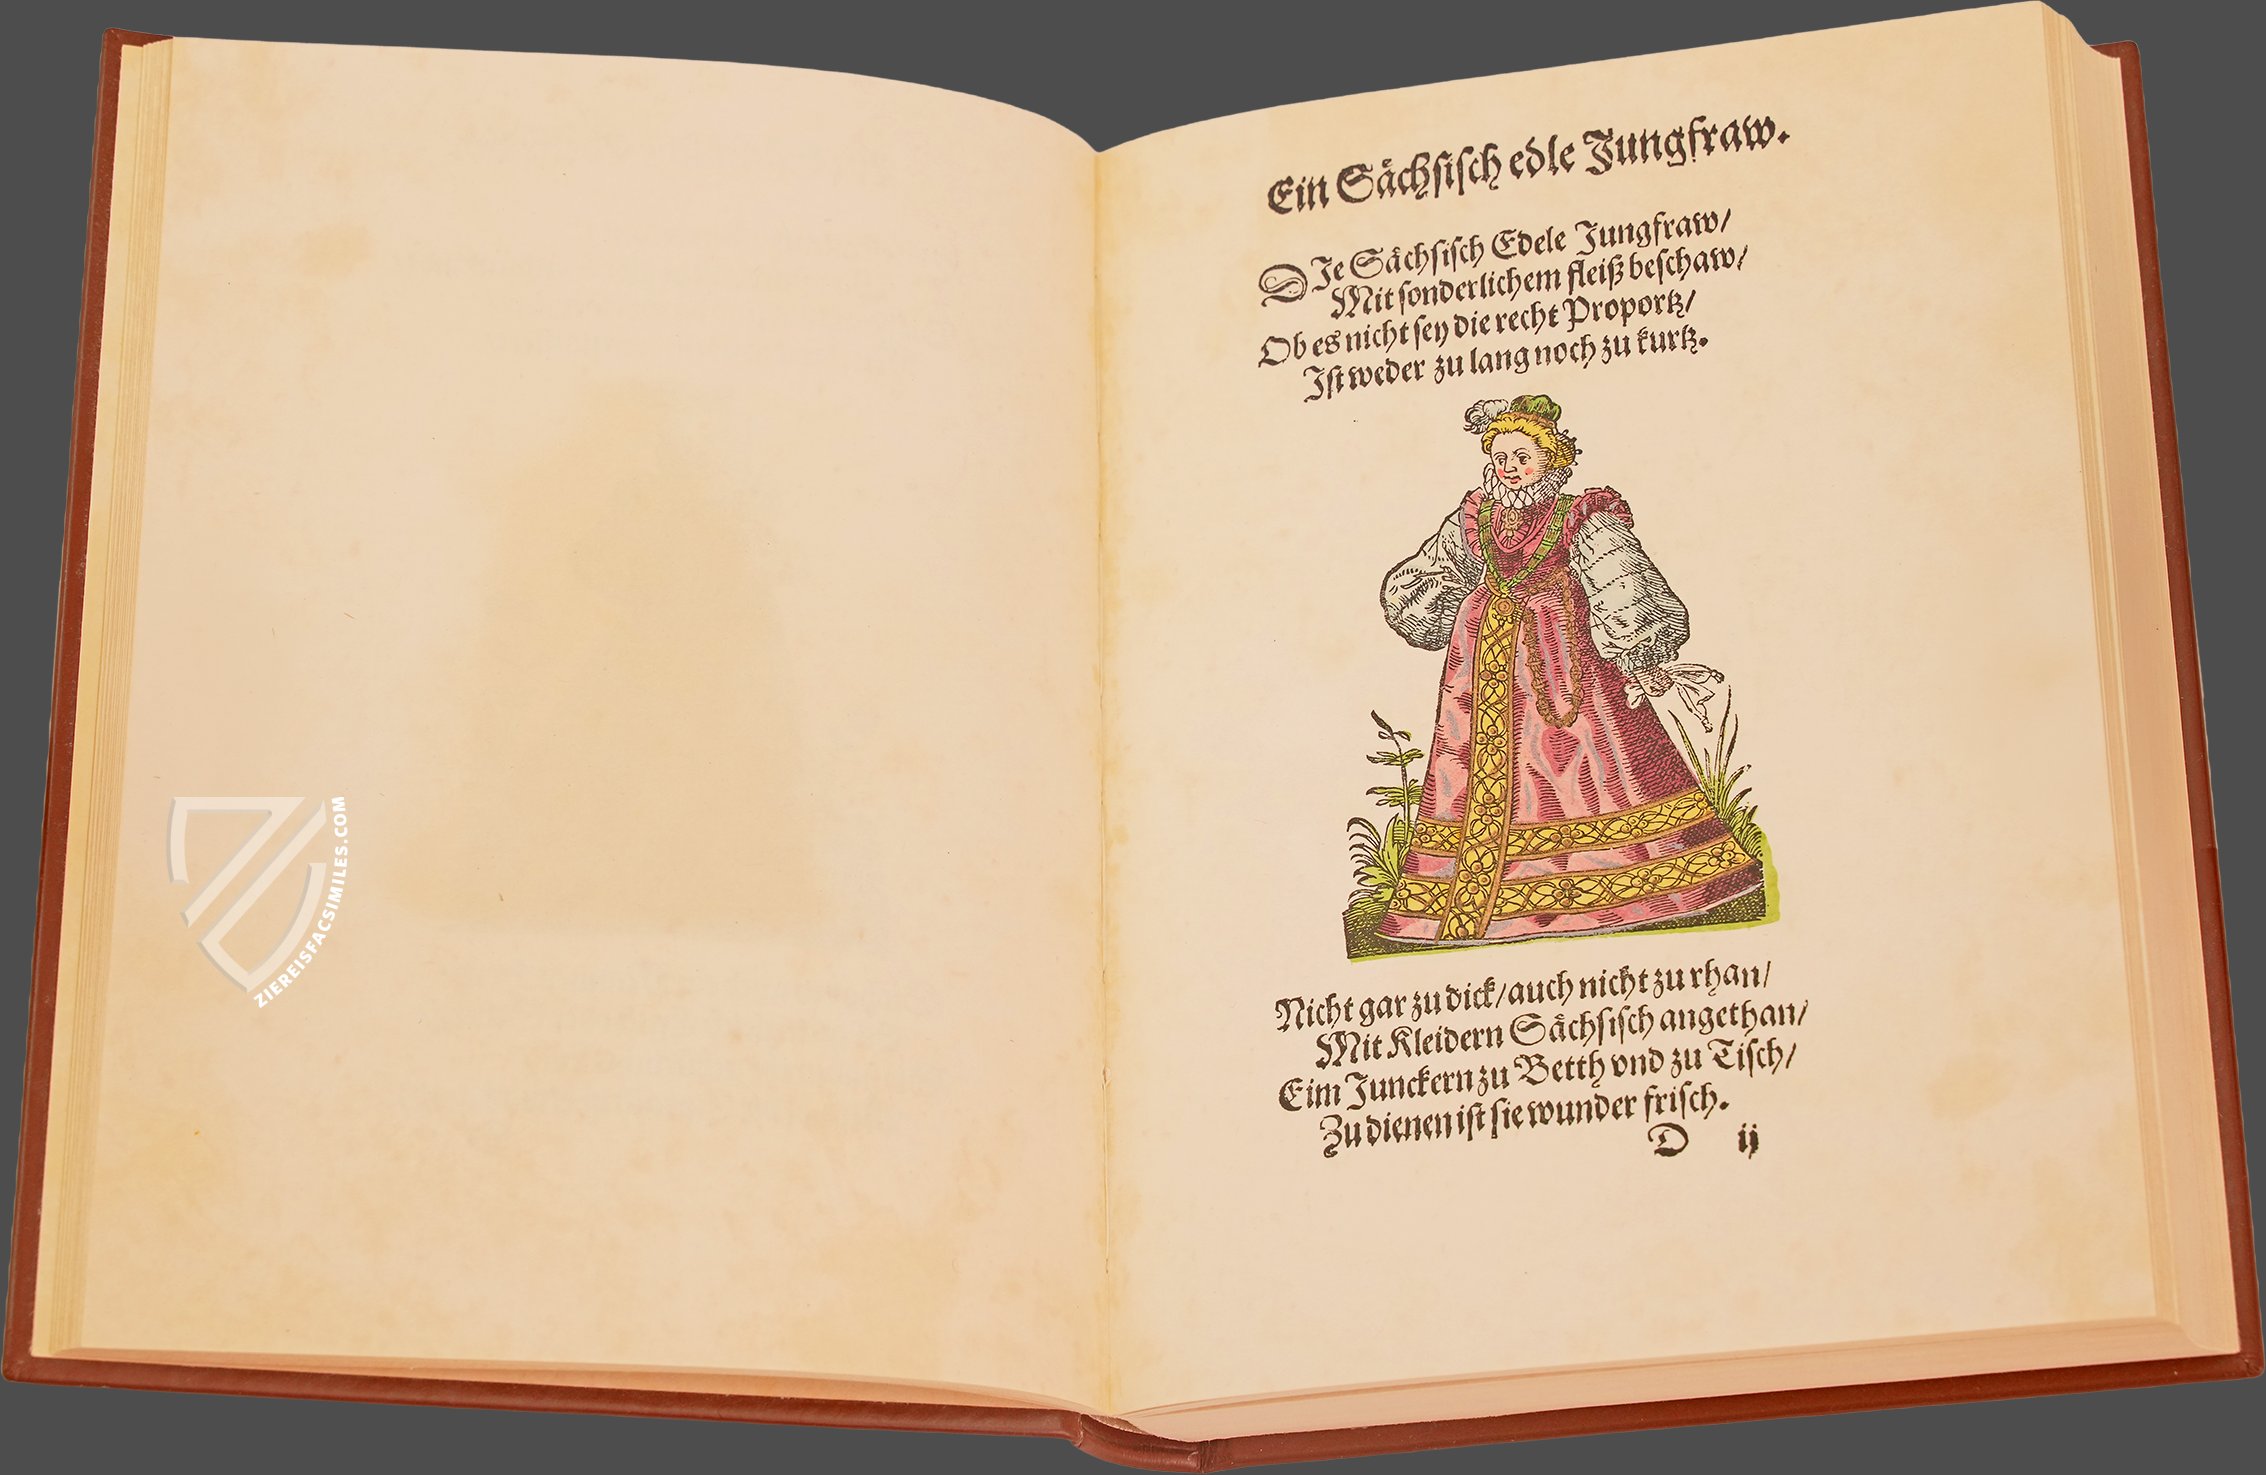 Ein Sächsisch edle Jungfraw.
DIe Sächsisch Edele Jungfraw/
Mit sonderlichem fleiß beschaw/
Ob es nicht sey die recht Proportz/
Ist weder zu lang noch zu kurtz.
Nicht gar zu dick/ auch nicht zu rhan/
Mit Kleidern Sächsisch angethan/
Eim Junckern zu Betth vnd zu Tisch/
Zu dienen ist sie wunder frisch.
D ij
ZIEREISFACSIMILES.COM